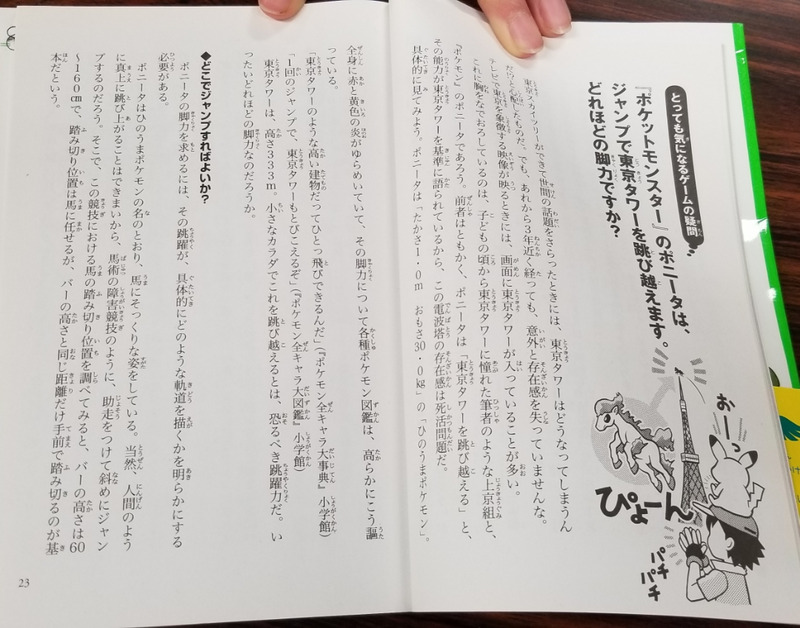 とっても気になるゲームの疑問
『ポケットモンスター』のポニータは、
ジャンプで東京タワーを跳び越えます。
どれほどの脚力ですか？
おーっ
ぴょーん
パチ
パチ
東京スカイツリーができて世間の話題をさらったときには、東京タワーはどうなってしまうん
だろうと心配したものだ。でも、あれから3年近く経っても、意外と存在感を失っていませんな。
テレビで東京を象徴する映像が映るときには、画面に東京タワーが入っていることが多い。
これに胸をなでおろしているのは、子どもの頃から東京タワーに憧れた筆者のような上京組と、
『ポケモン』のポニータであろう。前者はともかく、ポニータは「東京タワーを跳び越える」と、
その能力が東京タワーを基準に語られているから、この電波塔の存在感は死活問題だ。
具体的に見てみよう。ポニータは「たかさ1・0m　おもさ30・0kg」の「ひのうまポケモン」。
全身に赤と黄色の炎がゆらめいていて、その脚力について各種ポケモン図鑑は、高らかにこう謳
っている。
「東京タワーのような高い建物だってひとっ飛びできるんだ」（『ポケモン全キャラ大事典』小学館）
「1回のジャンプで、東京タワーもとびこえるぞ」（『ポケモン全キャラ大図鑑』小学館）
東京タワーは、高さ333m。小さなカラダでこれを跳び越えるとは、恐るべき跳躍力だ。い
ったいどれほどの脚力なのだろうか。
◆どこでジャンプすればよいか？
ポニータの脚力を求めるには、その跳躍が、具体的にどのような軌道を描くかを明らかにする
必要がある。
ポニータはひのうまポケモンの名のとおり、馬にそっくりな姿をしている。当然、人間のよう
に真上に跳び上がることはできまいから、馬術の障害競技のように、助走をつけて斜めにジャン
プするのだろう。そこで、この競技における馬の踏み切り位置を調べてみると、バーの高さは60
〜160cmで、踏み切り位置は馬に任せるが、バーの高さと同じ距離だけ手前で踏み切るのが基
本だという。
23